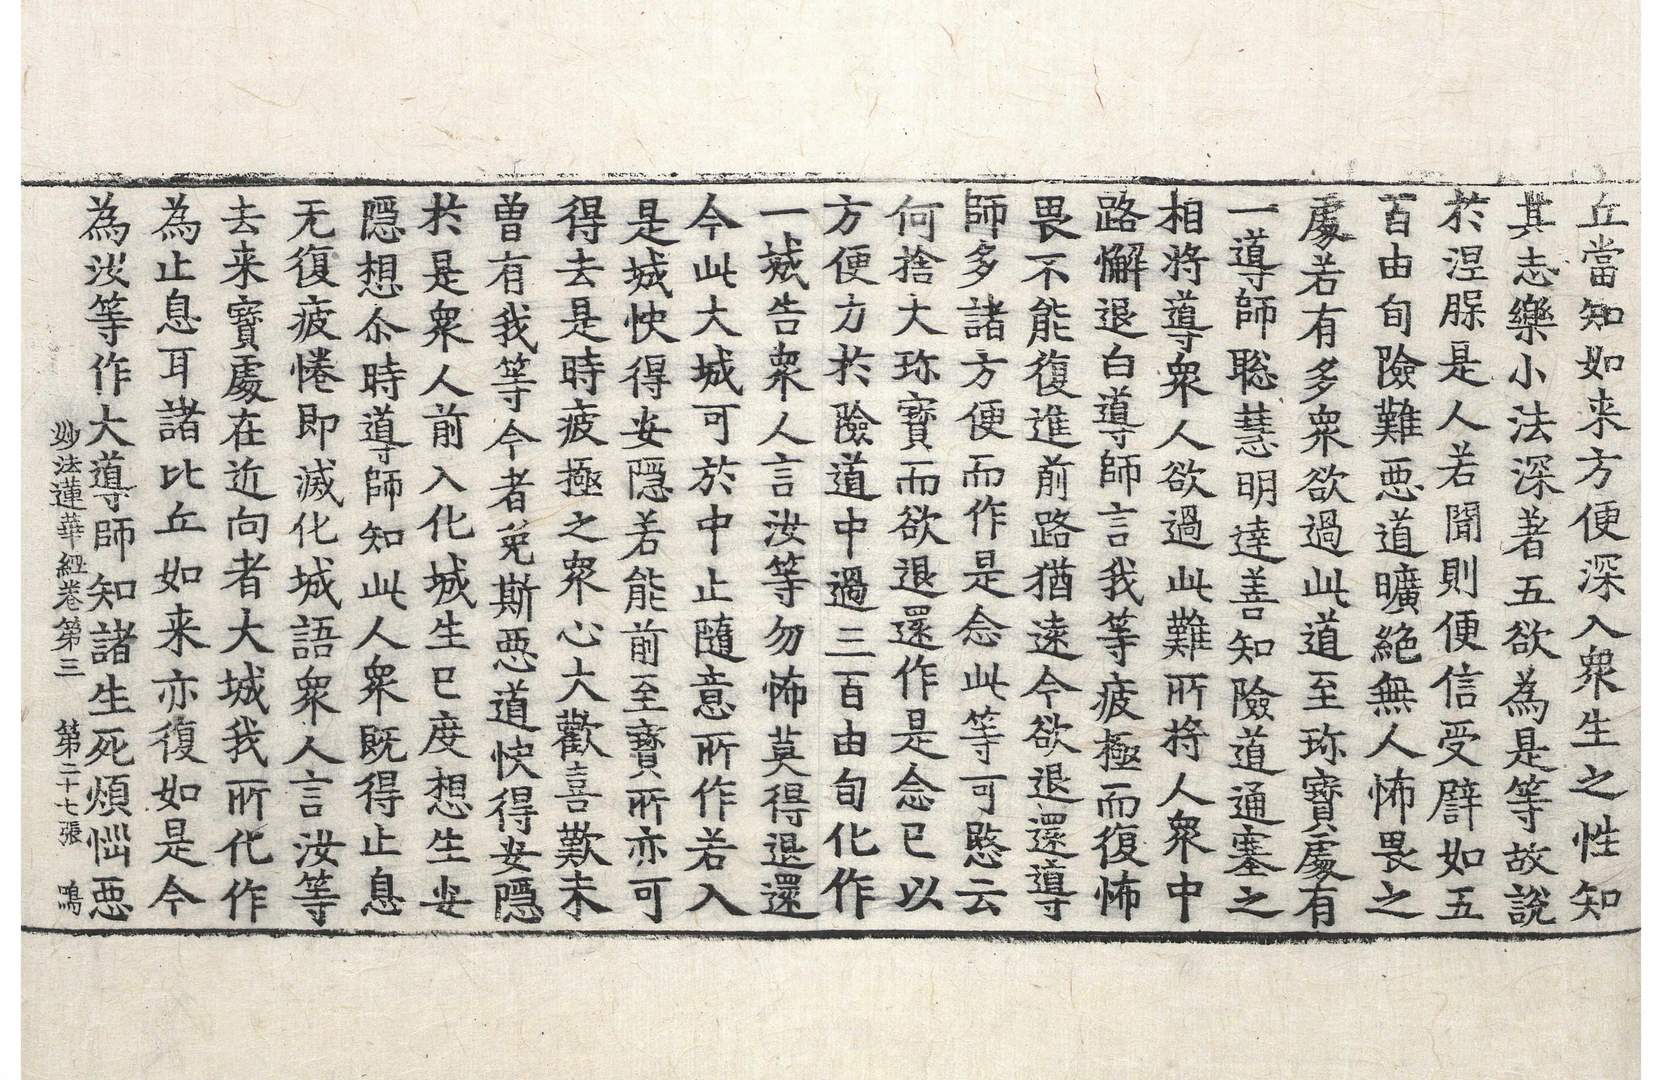 丘當知如来方便深入衆生之性知
其志樂小法深著五欲為是等故說
於涅槃是人若聞則便信受譬如五
百由旬險難惡道曠絕無人怖畏之
處若有多衆欲過此道至珎寶處有
一導師聡慧明達善知險道通塞之
相將導衆人欲過此難所將人衆中
路懈退白導師言我等疲極而復怖
畏不能復進前路猶遠今欲退還導
師多諸方便而作是念此等可愍云
何捨大珎寶而欲退還作是念已以
方便力於險道中過三百由旬化作
一城告衆人言汝等勿怖莫得退還
今此大城可於中止隨意所作若入
是城快得安隱若能前至寶所亦可
得去是時疲極之衆心大歡喜歎未
曾有我等今者免斯惡道快得安隱
於是衆人前入化城生已度想生安
隱想尒時導師知此人衆既得止息
无復疲惓即滅化城語衆人言汝等
去来寶處在近向者大城我所化作
為止息耳諸比丘如来亦復如是今
為汝等作大導師知諸生死煩惱惡
妙法蓮華經卷第三 第二十七張 鳴